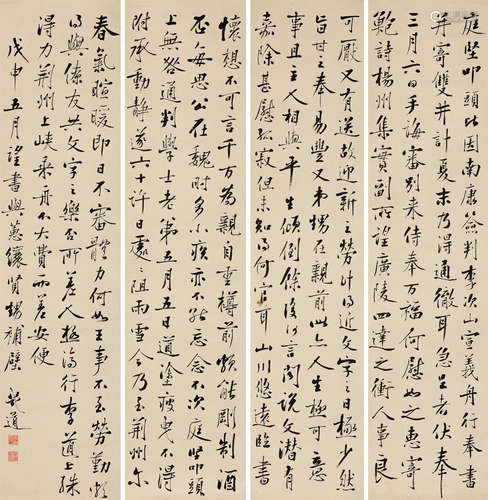 庭堅叩頭比因南康簽判李次山宣義舟行奉書
并寄雙井計夏末乃得通徹耳急足者伏奉
三月六日手誨審別來侍奉万福何慰如之惠寄
鮑詩楊州集實副所望廣陵四達之衝人事良
可厭又有送故迎新之勞計得近文字之日極少然
旨甘之奉易豐又弟甥在親前此亦人生極可意
事且主人相與平生傾倒餘後言聞說文潛有
嘉除甚慰孤寂但未知得何官耳山川悠遠臨書
懷想不可言千万為親自重樽前頻能剛制酒
否每思公在魏時多小疾亦不能忘念不次庭堅叩頭
上無咎通判學士老弟五月五日道塗疲曳不得
附承動靜遂六十許日處處阻雨雪今乃至荊州尔
春氣暄暖即日不審體力何如王事不至勞勤頻
得與僚友共文字之樂否所差人極濟行李道上殊
得力荊州上峽乘舟不大費而差安便
戊申五月望書與蕙穰賢甥補壁 道